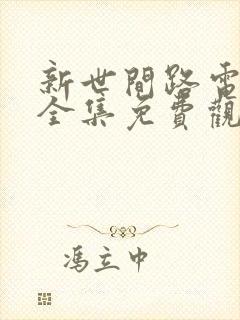 新世間路電
全集免費觀
馮立中